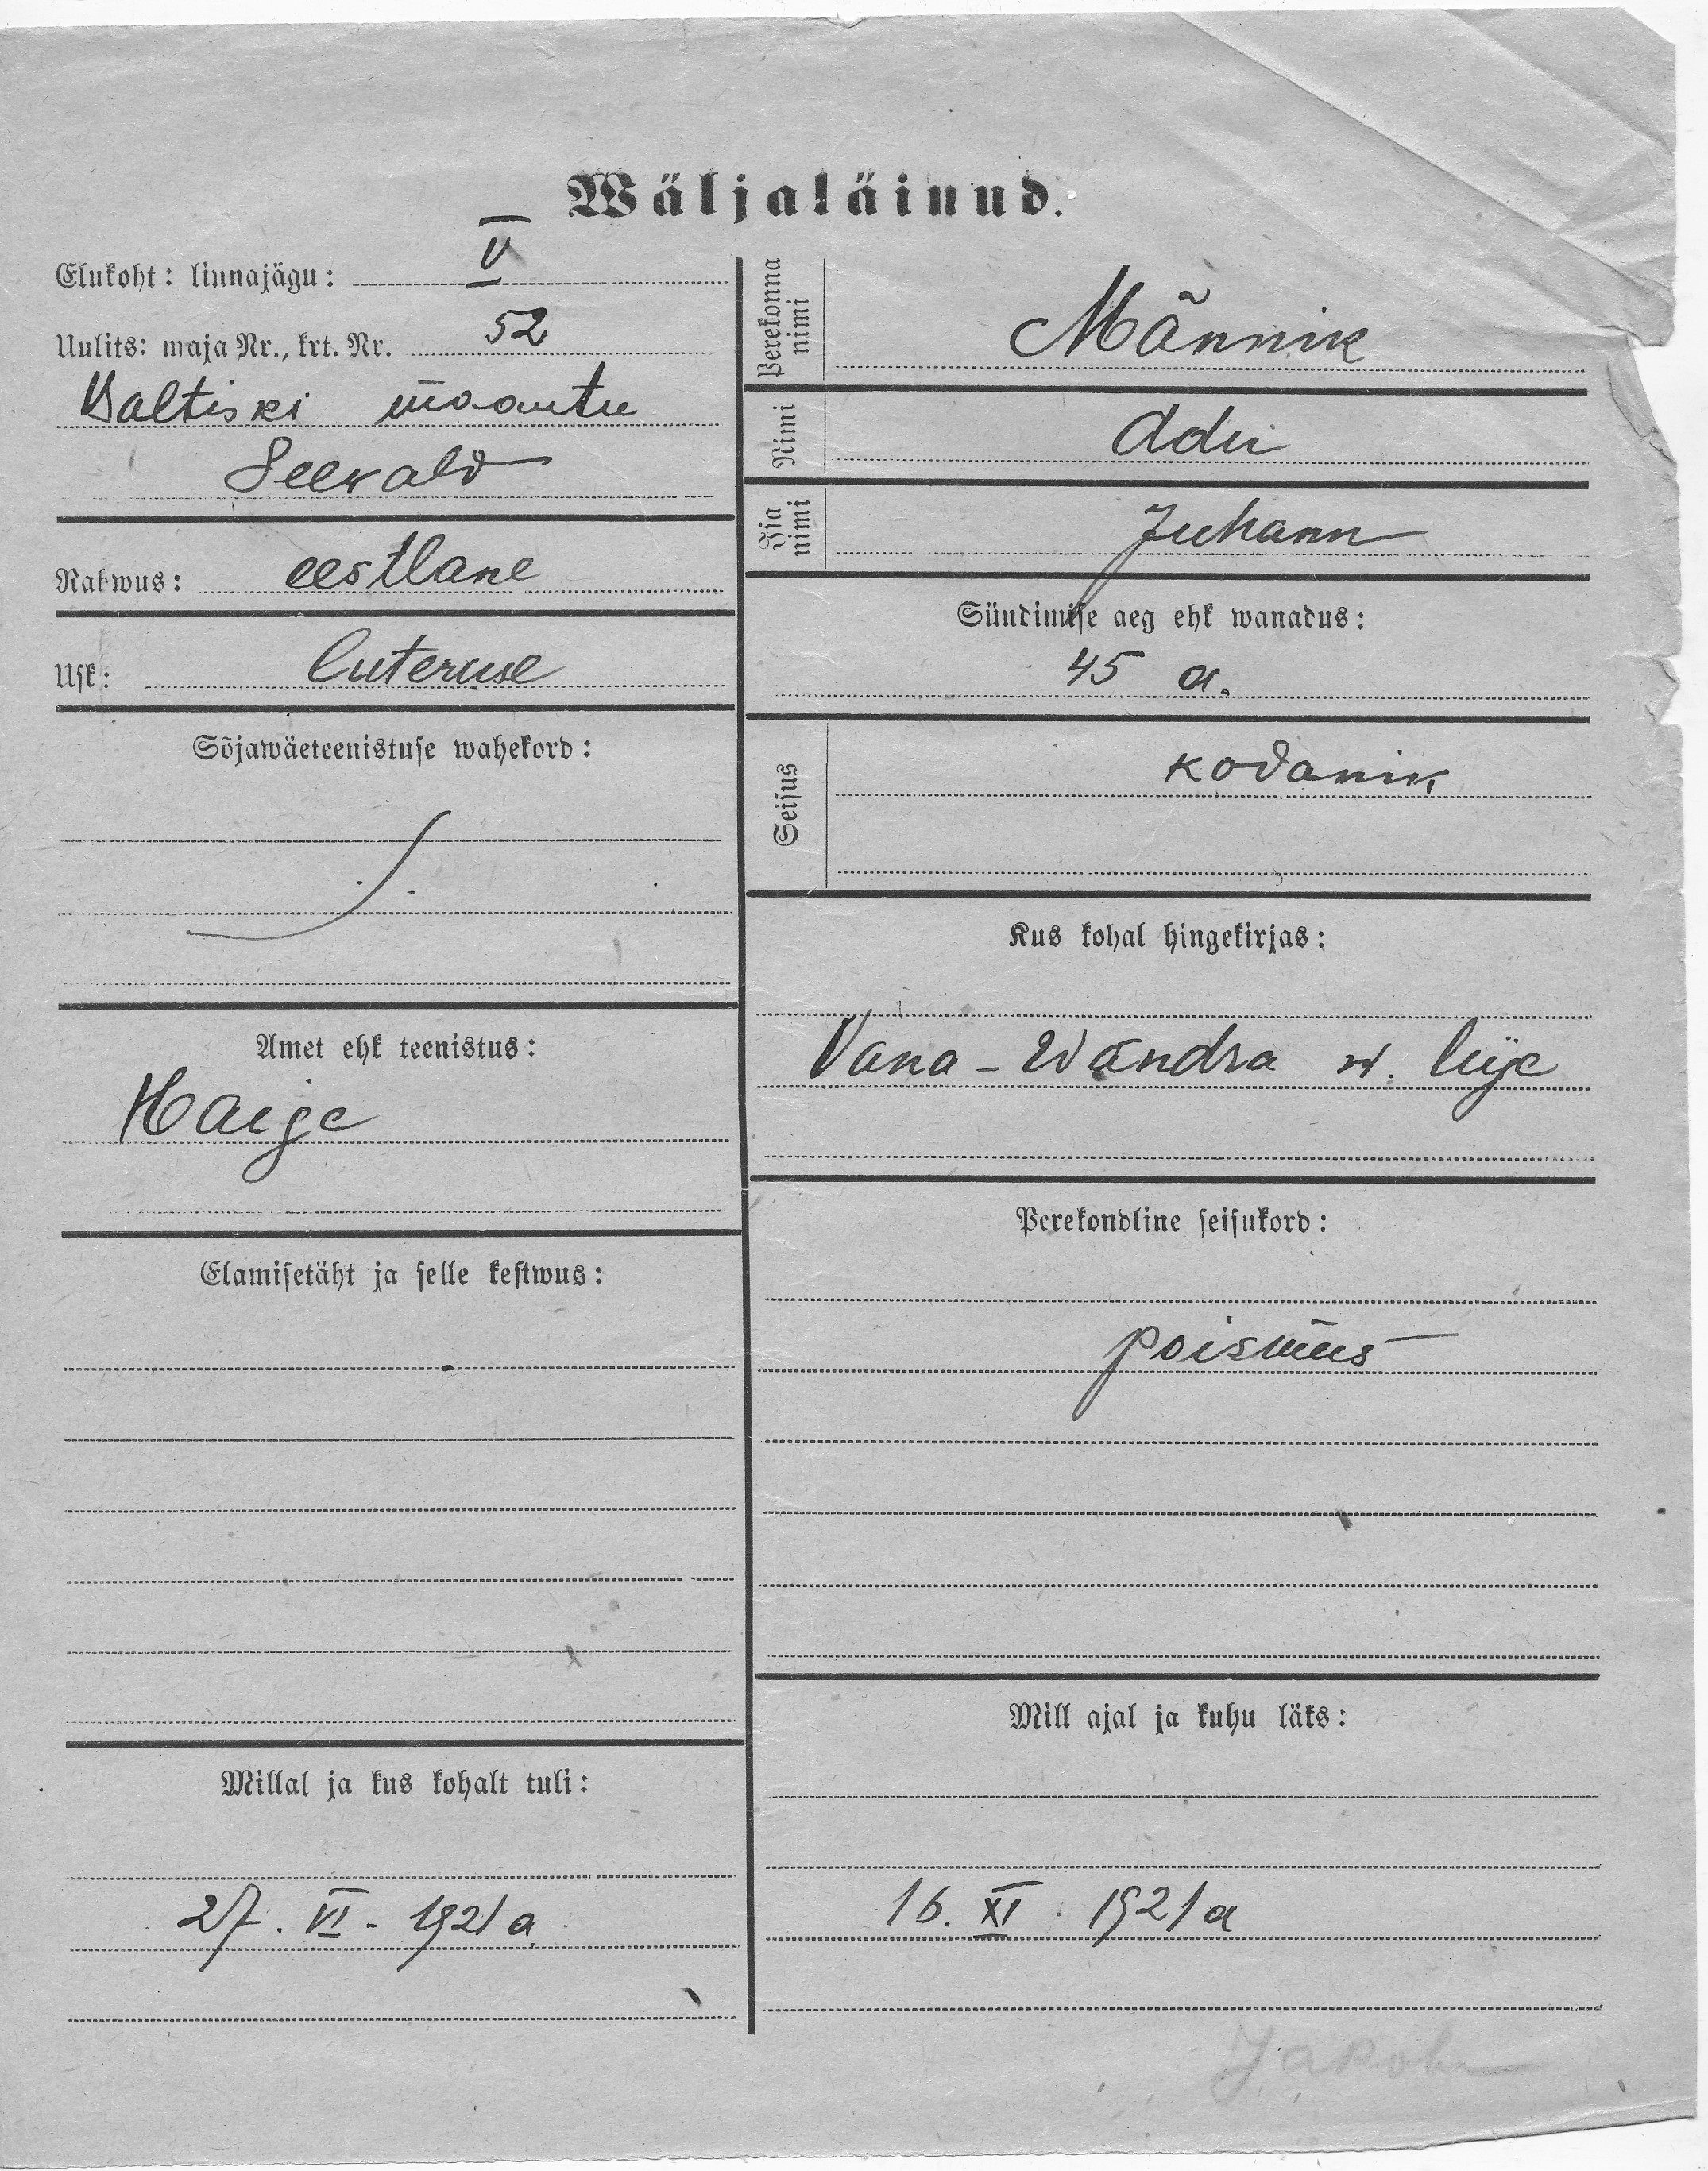 Wäljaläinud.
Elukoht: linnajägu: V
Uulits: maja Nr., krt. Nr. 52
Baltiski maantee
Seewald
Rahwus: eestlane
Usk: luteruse
Sõjawäeteenistuse wahekord:
Amet ehk teenistus:
Haige
Elamisetäht ja selle kestwus:
Millal ja kus kohalt tuli:
27. VI - 1921 a.
Perekonna nimi Männik
Nimi Adu
Isa nimi Juhann
Sündimise aeg ehk wanadus:
45 a.
Seisus kodanik
Kus kohal hingekirjas:
Vana-Wändra w. liige
Perekondline seisukord:
poismees
Mill ajal ja kuhu läks:
16. XI. 1921 a